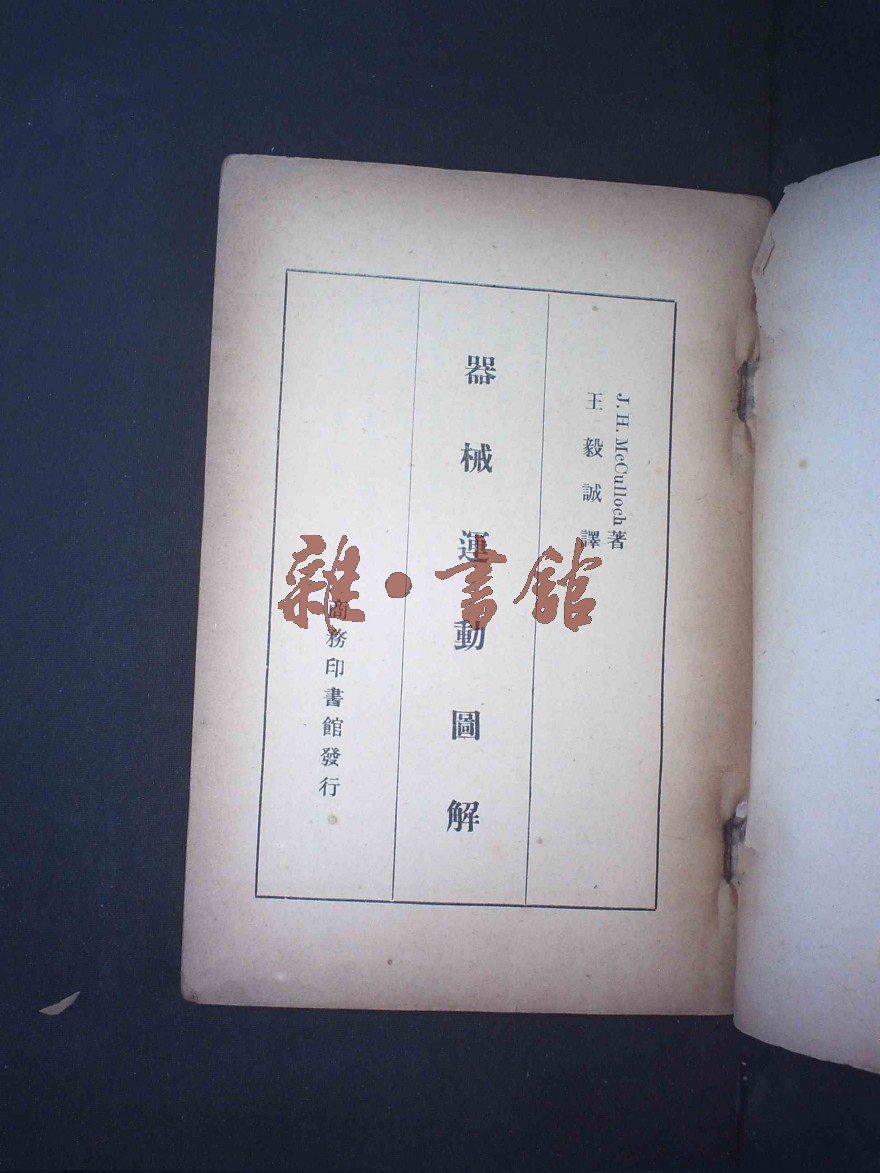 J. H. McCulloch 著
王毅誠譯
器械運動圖解
商務印書館發行
雜·書館